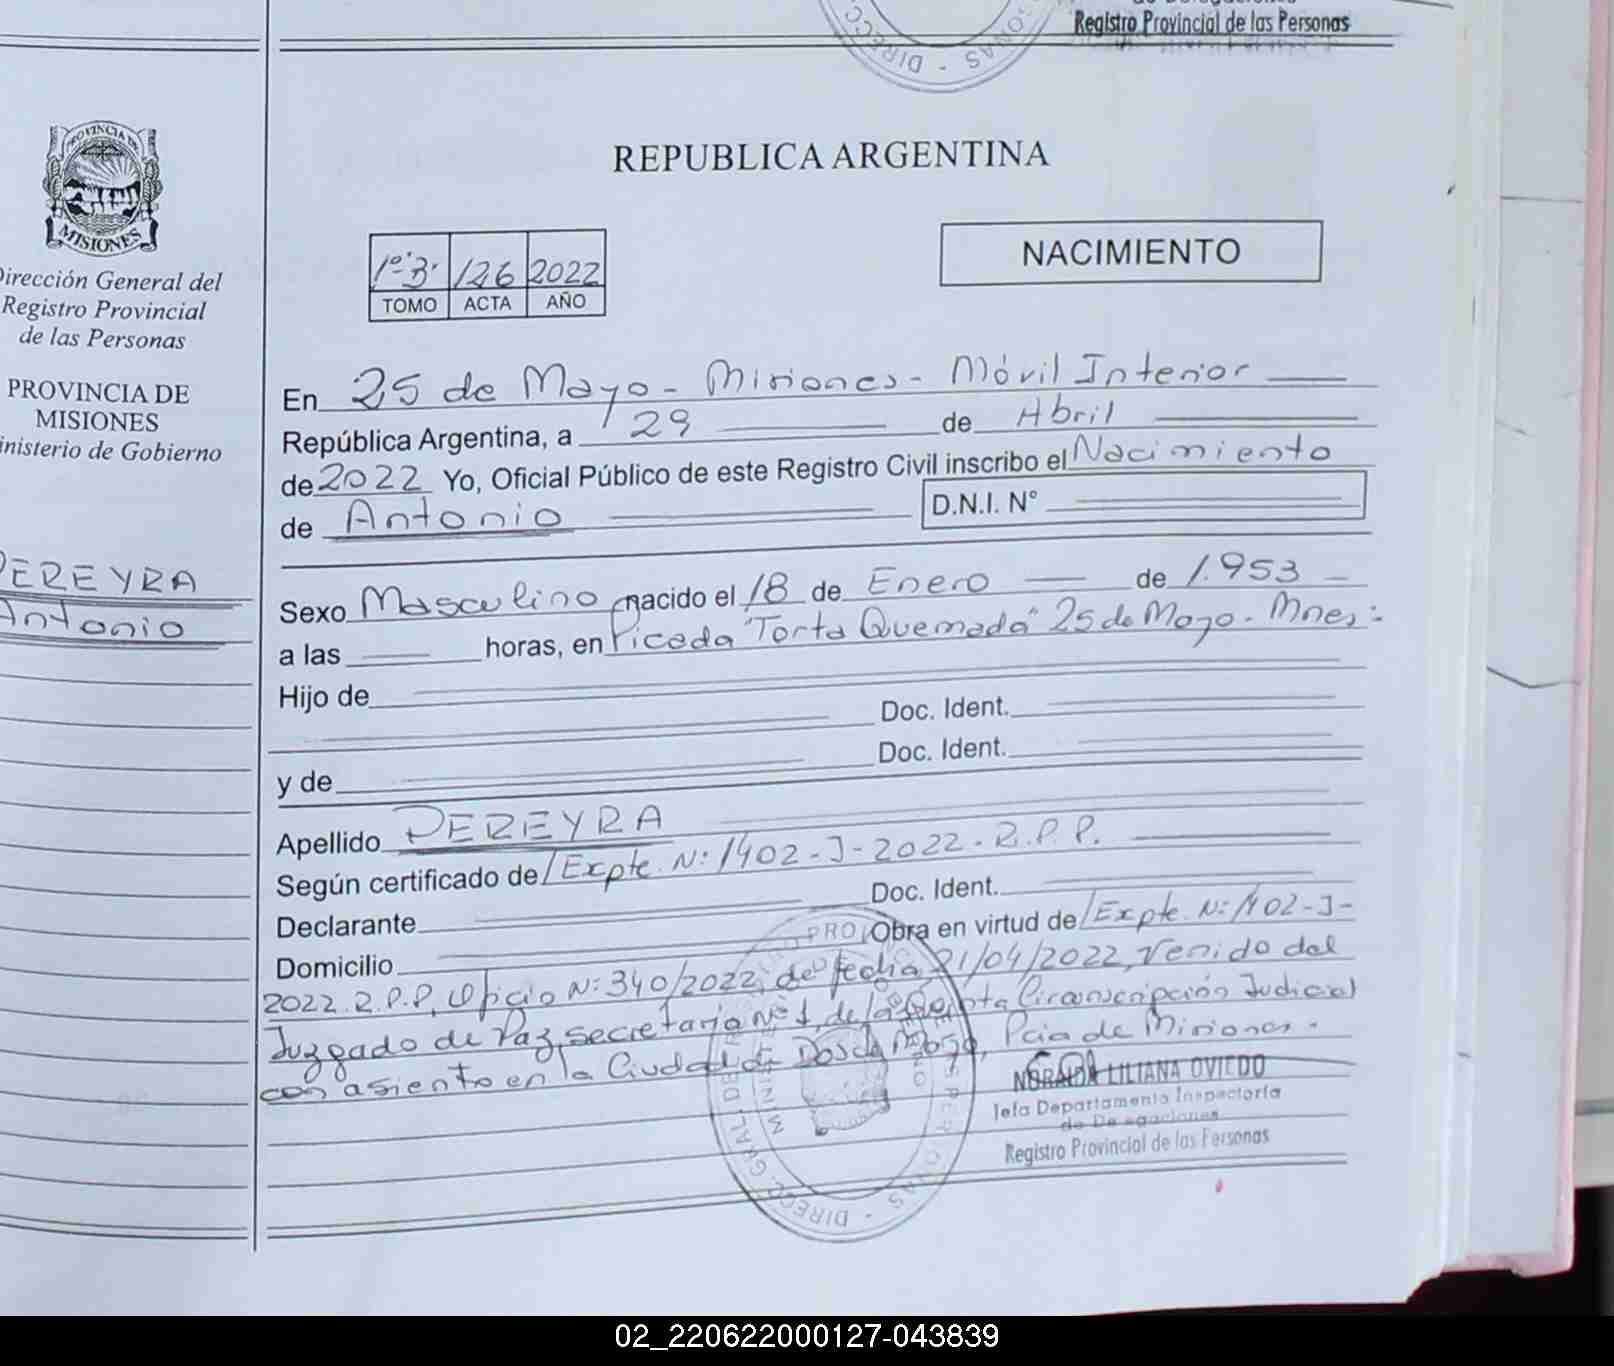 Registro Provincial de las Personas
DIRECC
ONAS - DIREC
REPUBLICA ARGENTINA
PROVINCIA DE
MISIONES
1º "B" 126 2022
TOMO ACTA AÑO
NACIMIENTO
Dirección General del
Registro Provincial
de las Personas
PROVINCIA DE
MISIONES
inisterio de Gobierno
PEREYRA
Antonio
En 25 de Mayo - Misiones - Móvil Interior
República Argentina, a 29 de Abril
de 2022 Yo, Oficial Público de este Registro Civil inscribo el Nacimiento
de Antonio D.N.I. N°
Sexo Masculino nacido el 18 de Enero de 1.953
a las horas, en Picada "Torta Quemada" 25 de Mayo - Mnes.-
Hijo de
Doc. Ident.
y de Doc. Ident.
Apellido PEREYRA
Según certificado de Expte. N: 1402-J-2022-R.P.P.
Declarante Doc. Ident.
Domicilio Obra en virtud de Expte. N: 1402-J-
2022.R.P.P, Oficio N: 340/2022, de fecha 21/04/2022, Venido del
Juzgado de Paz, secretaria Nº 1, de la Quinta Circunscripción Judicial
con asiento en la Ciudad de Dos de Mayo, Pcia de Misiones.-
NORAIDA LILIANA OVIEDO
Jefa Departamento Inspectoría
de Delegaciones
Registro Provincial de las Personas
02_220622000127-043839